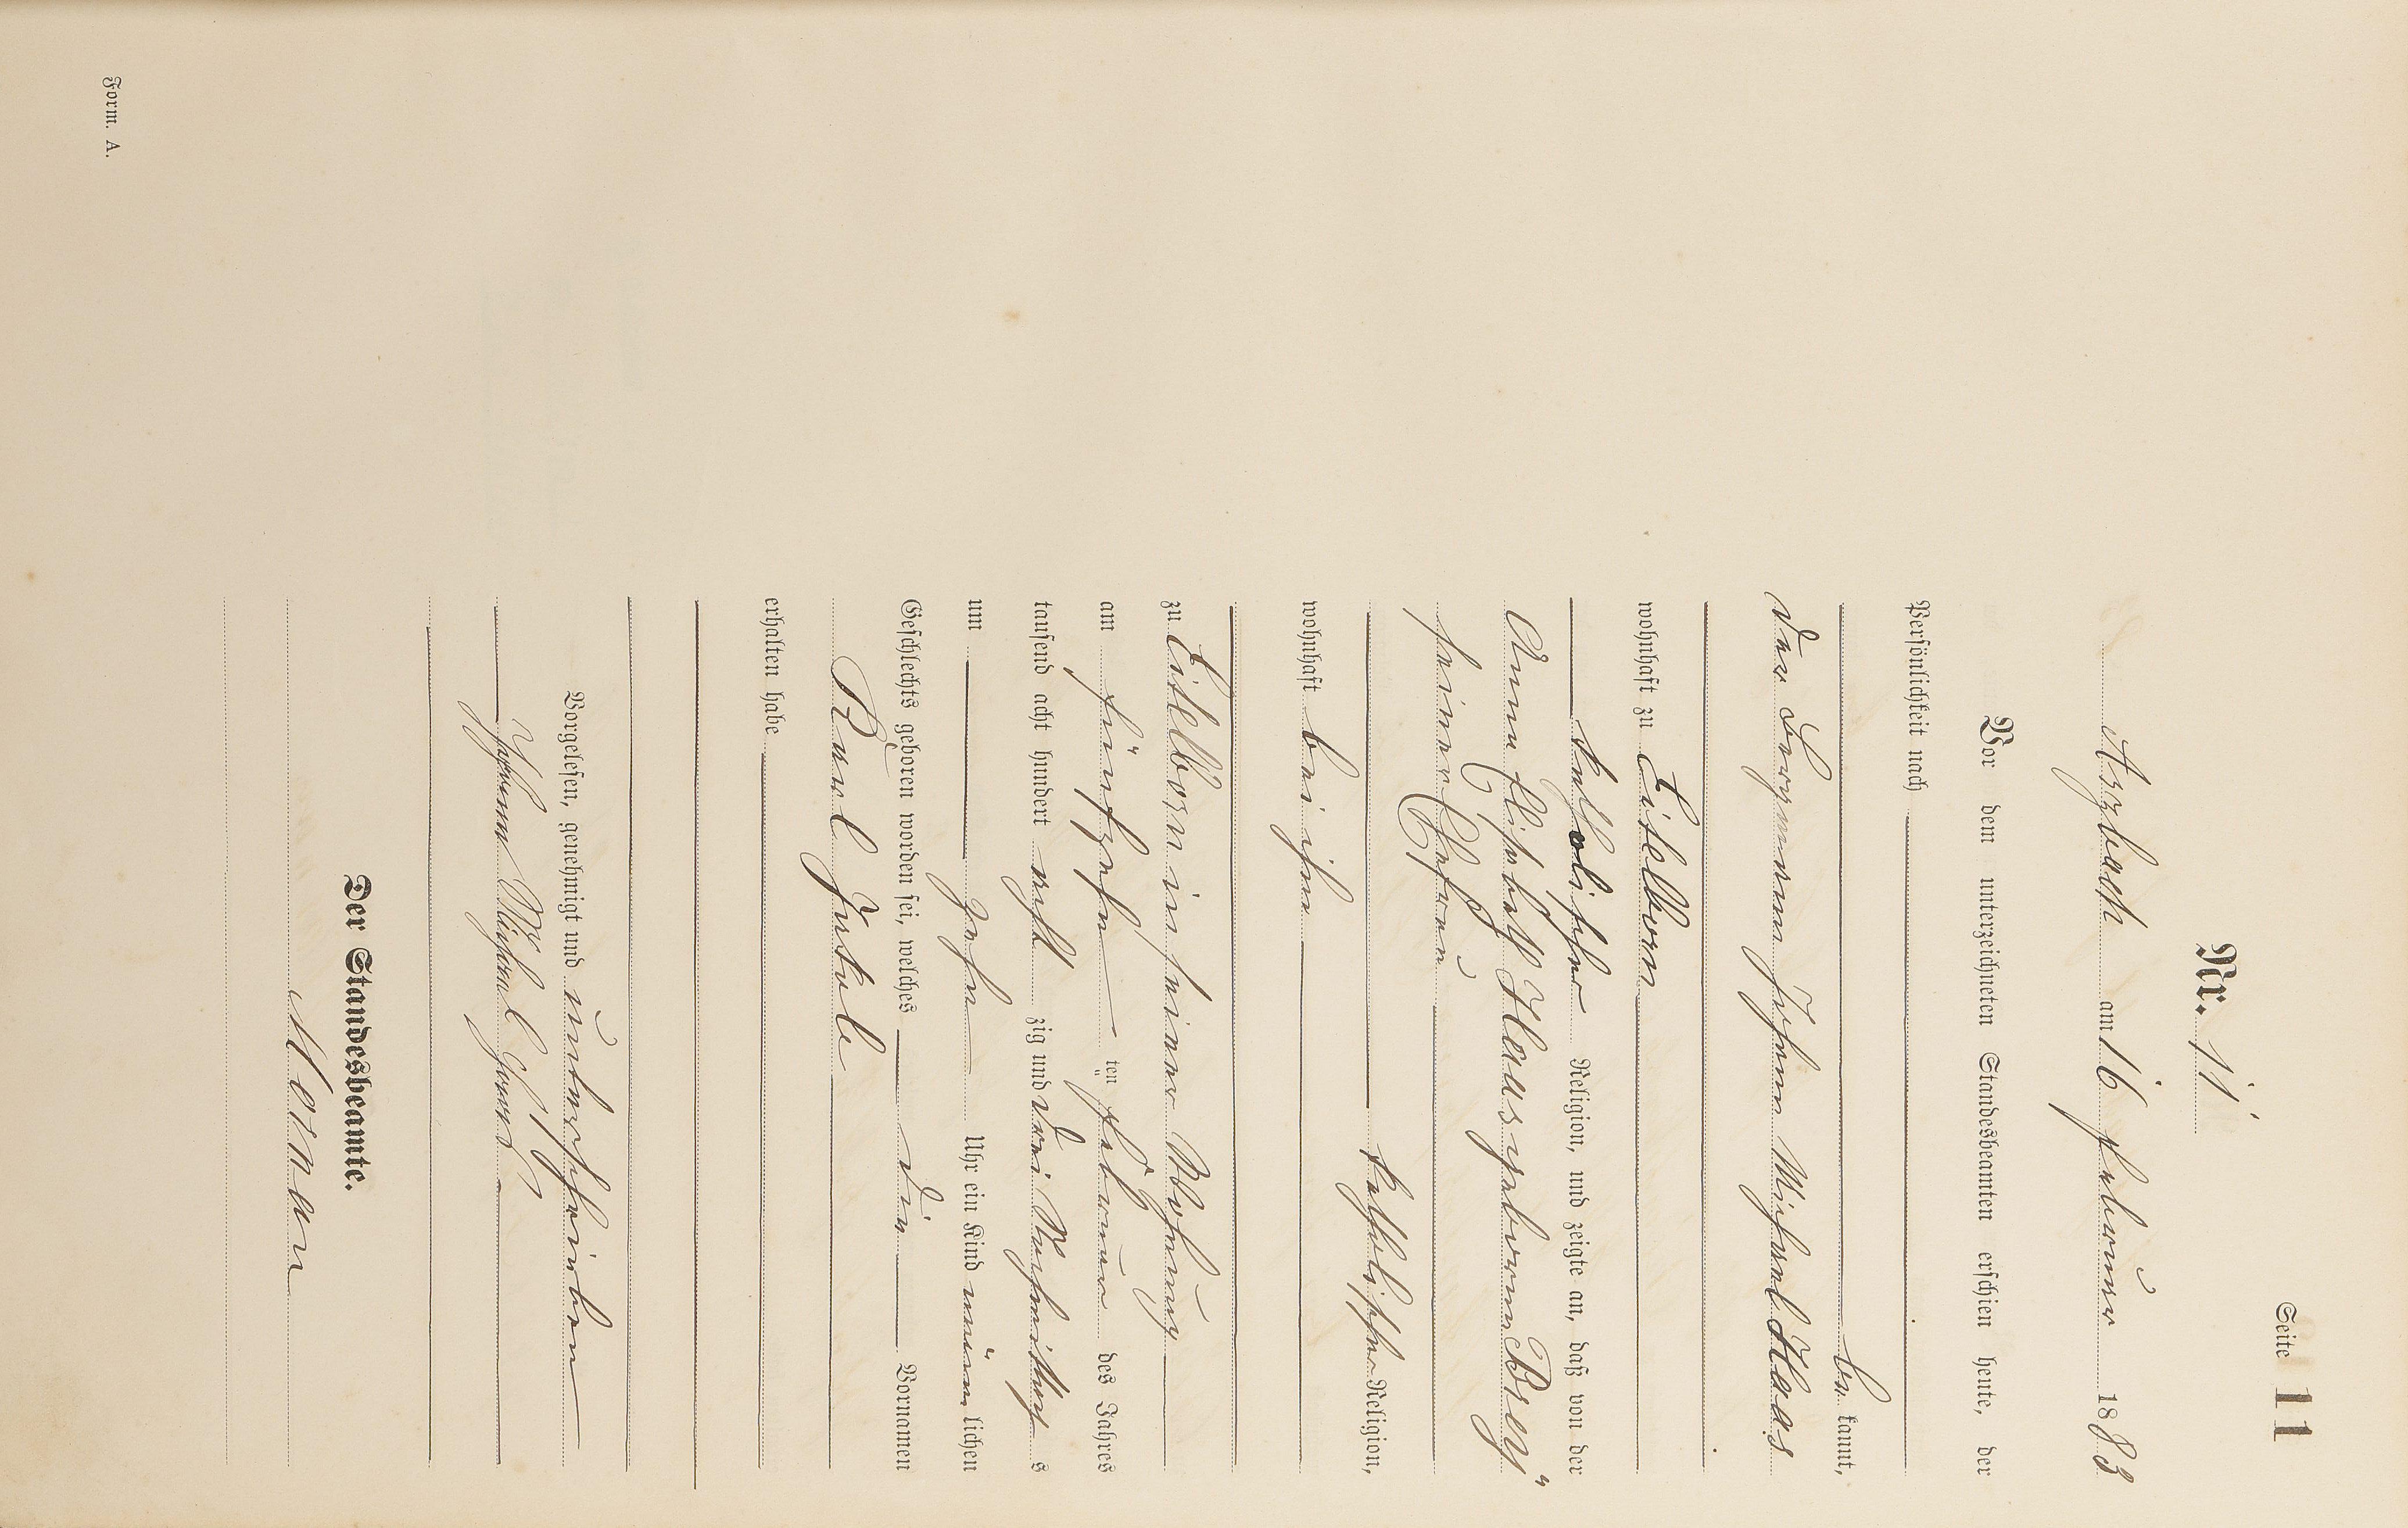 Seite 11
Nr. 11
Arzbach am 16 Februar 1883
Vor dem unterzeichneten Standesbeamten erschien heute, der
Persönlichkeit nach
be kannt,
der Bergmann Johann Michael Haas
wohnhaft zu Eitelborn
katholischer Religion, und zeigte an, daß von der
Anna Elisabeth Haas geborenen
seiner Ehefrau
katholischer Religion,
wohnhaft bei ihm
zu Eitelborn in seiner Wohnung
am fünfzehn ten Februar des Jahres
tausend acht hundert acht zig und drei Nachmittags
um zehn Uhr ein Kind männ lichen
Geschlechts geboren worden sei, welches die Vornamen
Karl
erhalten habe
Vorgelesen, genehmigt und unterschrieben
Johann Michael Haas
Der Standesbeamte.
Form. A.